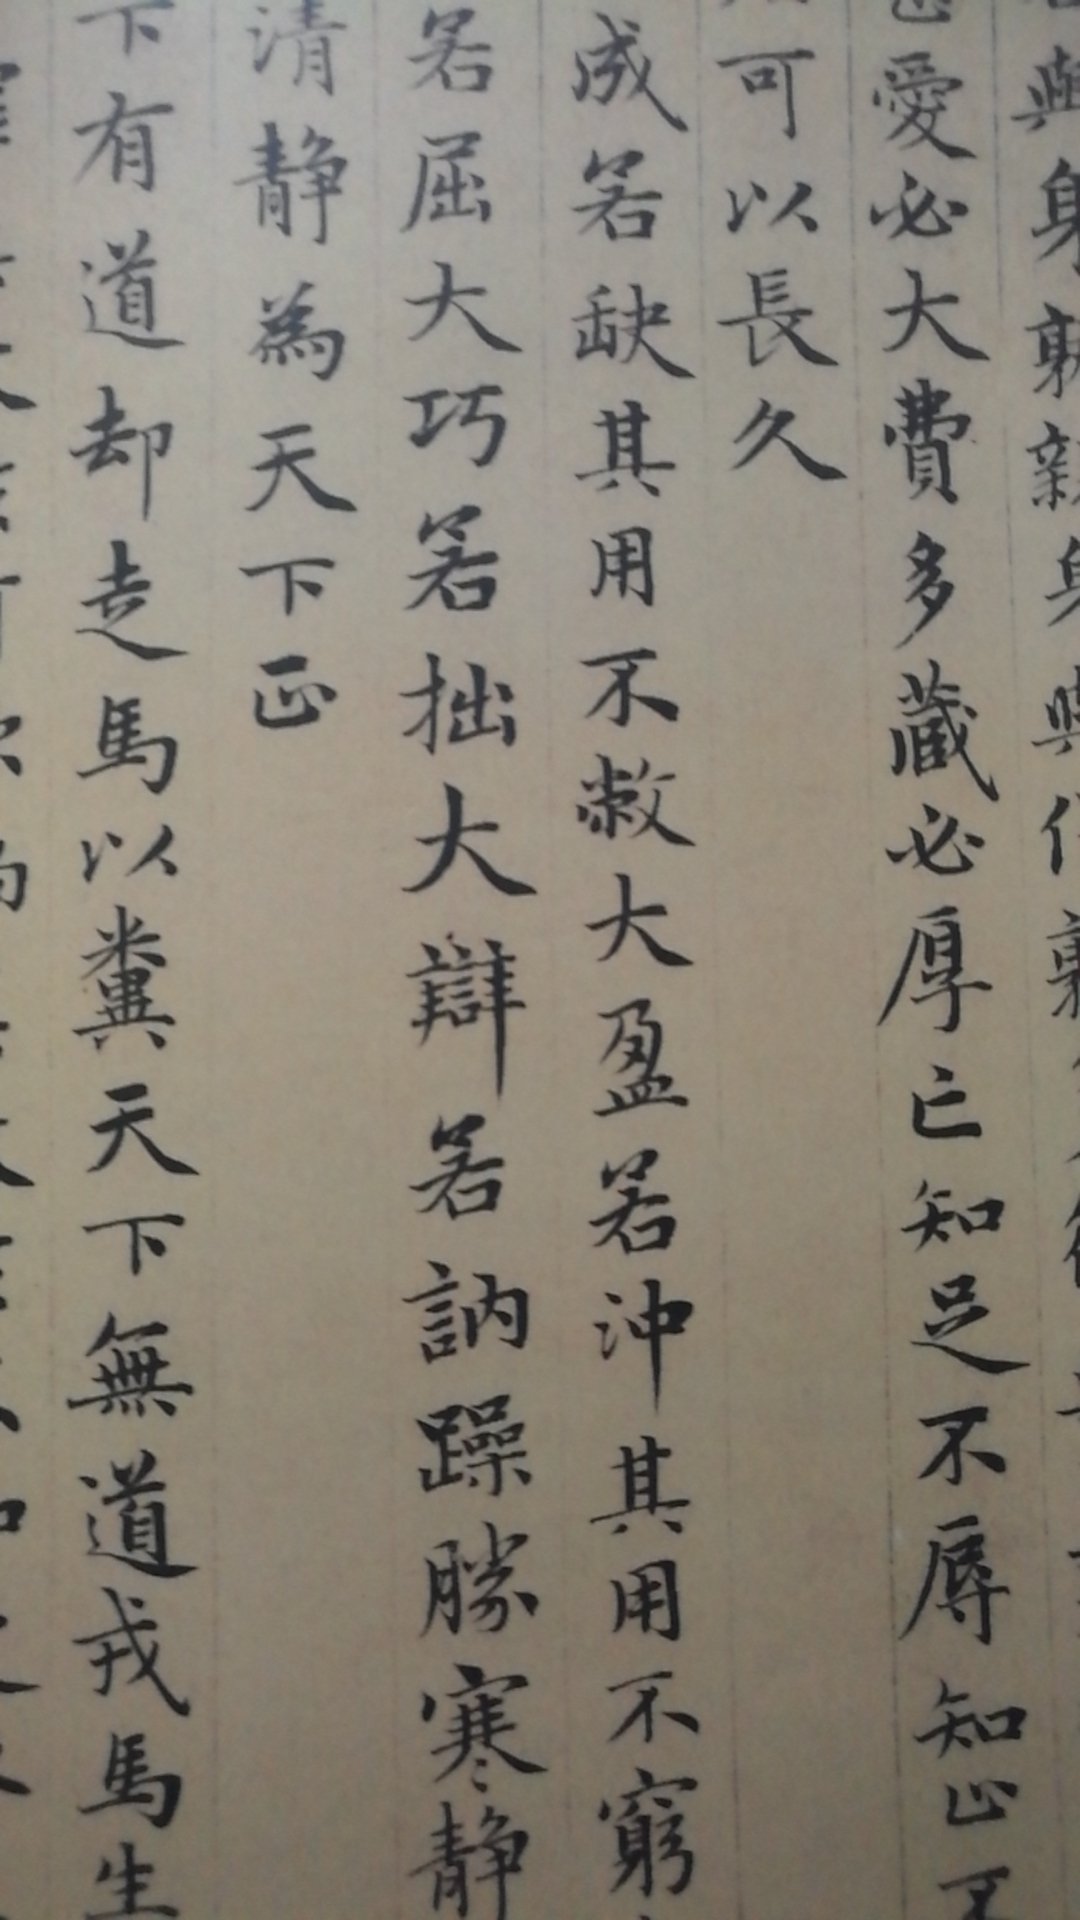 與身孰親身與
愛必大費多藏必厚亡知足不辱知止不
可以長久
成若缺其用不敝大盈若沖其用不窮
若屈大巧若拙大辯若訥躁勝寒静
清静為天下正
下有道却走馬以糞天下無道戎馬生